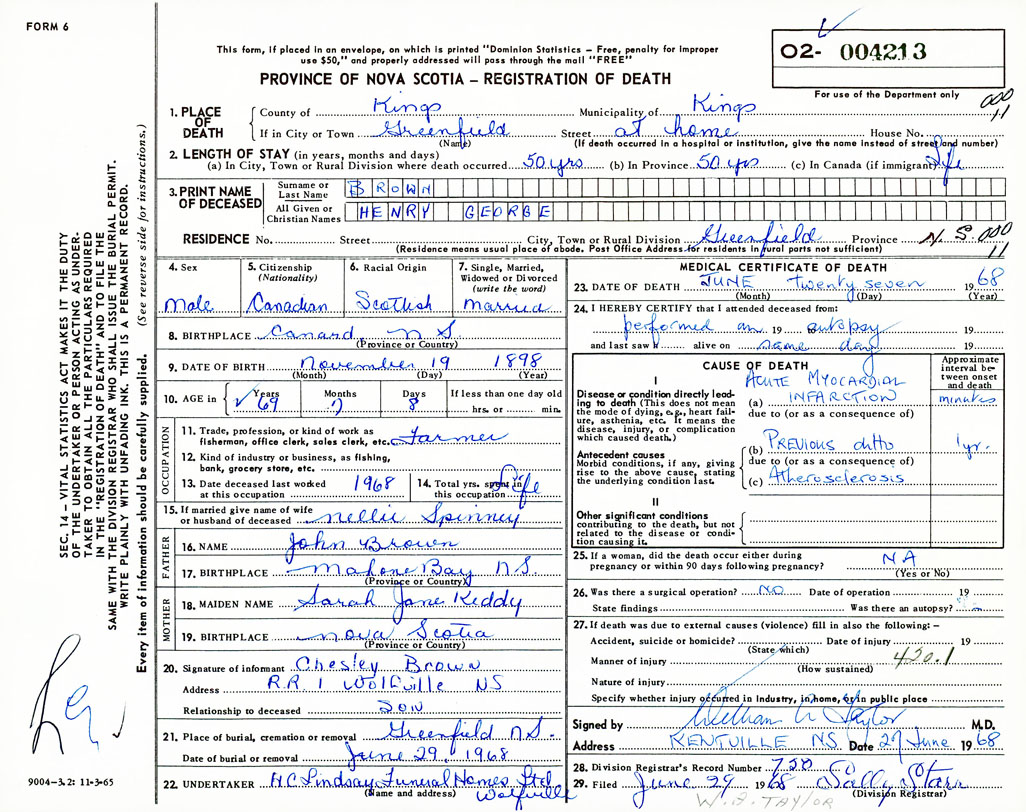 FORM 6
This form, if placed in an envelope, on which is printed "Dominion Statistics – Free, penalty for improper
use $50," and properly addressed will pass through the mail "FREE"
PROVINCE OF NOVA SCOTIA – REGISTRATION OF DEATH
02- 004213
For use of the Department only
000
11
1. PLACE OF DEATH County of Kings Municipality of Kings
If in City or Town Greenfield Street at home House No.
(Name) (If death occurred in a hospital or institution, give the name instead of street and number)
2. LENGTH OF STAY (in years, months and days)
(a) In City, Town or Rural Division where death occurred 50 yrs (b) In Province 50 yrs (c) In Canada (if immigrant) Life
3. PRINT NAME OF DECEASED Surname or Last Name BROWN
All Given or Christian Names HENRY GEORGE
RESIDENCE No. Street City, Town or Rural Division Greenfield Province N.S. 000
11
(Residence means usual place of abode. Post Office Address for residents in rural parts not sufficient)
4. Sex
Male
5. Citizenship
(Nationality)
Canadian
6. Racial Origin
Scottish
7. Single, Married,
Widowed or Divorced
(write the word)
married
8. BIRTHPLACE Canard N S
(Province or Country)
9. DATE OF BIRTH November 19 1898
(Month) (Day) (Year)
10. AGE in Years Months Days If less than one day old
69 7 8 hrs. or min.
OCCUPATION
11. Trade, profession, or kind of work as
fisherman, office clerk, sales clerk, etc. Farmer
12. Kind of industry or business, as fishing,
bank, grocery store, etc.
13. Date deceased last worked
at this occupation 1968
14. Total yrs. spent in
this occupation Life
15. If married give name of wife
or husband of deceased Nellie Spinney
FATHER
16. NAME John Brown
17. BIRTHPLACE Mahone Bay N.S.
(Province or Country)
MOTHER
18. MAIDEN NAME Sarah Jane Keddy
19. BIRTHPLACE Nova Scotia
(Province or Country)
20. Signature of informant Chesley Brown
Address R.R. 1 Wolfville NS
Relationship to deceased Son
21. Place of burial, cremation or removal Greenfield N.S.
Date of burial or removal June 29, 1968
22. UNDERTAKER H.C. Lindsay Funeral Homes Ltd
(Name and address) Wolfville
MEDICAL CERTIFICATE OF DEATH
23. DATE OF DEATH JUNE twenty seven 1968
(Month) (Day) (Year)
24. I HEREBY CERTIFY that I attended deceased from:
performed an 19 autopsy 19
and last saw h alive on same day 19
CAUSE OF DEATH
Approximate
interval be-
tween onset
and death
I
Disease or condition directly lead-
ing to death (This does not mean
the mode of dying, e.g., heart fail-
ure, asthenia, etc. It means the
disease, injury, or complication
which caused death.)
ACUTE MYOCARDIAL
(a) INFARCTION minutes
due to (or as a consequence of)
Antecedent causes
Morbid conditions, if any, giving
rise to the above cause, stating
the underlying condition last.
(b) PREVIOUS ditto 1yr.
due to (or as a consequence of)
(c) Atherosclerosis
II
Other significant conditions
contributing to the death, but not
related to the disease or condi-
tion causing it.
25. If a woman, did the death occur either during
pregnancy or within 90 days following pregnancy? NA
(Yes or No)
26. Was there a surgical operation? NO Date of operation 19
State findings Was there an autopsy?
27. If death was due to external causes (violence) fill in also the following: –
Accident, suicide or homicide? Date of injury 19
(State which)
Manner of injury 420.1
(How sustained)
Nature of injury
Specify whether injury occurred in Industry, in home, or in public place
Signed by William A Taylor M.D.
Address KENTVILLE NS Date 27 June 1968
28. Division Registrar's Record Number 728
29. Filed June 29 1968 Sally Starr
(Division Registrar)
W.A. TAYLOR
SEC. 14 – VITAL STATISTICS ACT MAKES IT THE DUTY
OF THE UNDERTAKER OR PERSON ACTING AS UNDER-
TAKER TO OBTAIN ALL THE PARTICULARS REQUIRED
IN THE "REGISTRATION OF DEATH" AND TO FILE THE
SAME WITH THE DIVISION REGISTRAR WHO SHALL ISSUE THE BURIAL PERMIT.
WRITE PLAINLY WITH UNFADING INK. THIS IS A PERMANENT RECORD.
Every item of information should be carefully supplied. (See reverse side for instructions.)
9004-3.2: 11-3-65